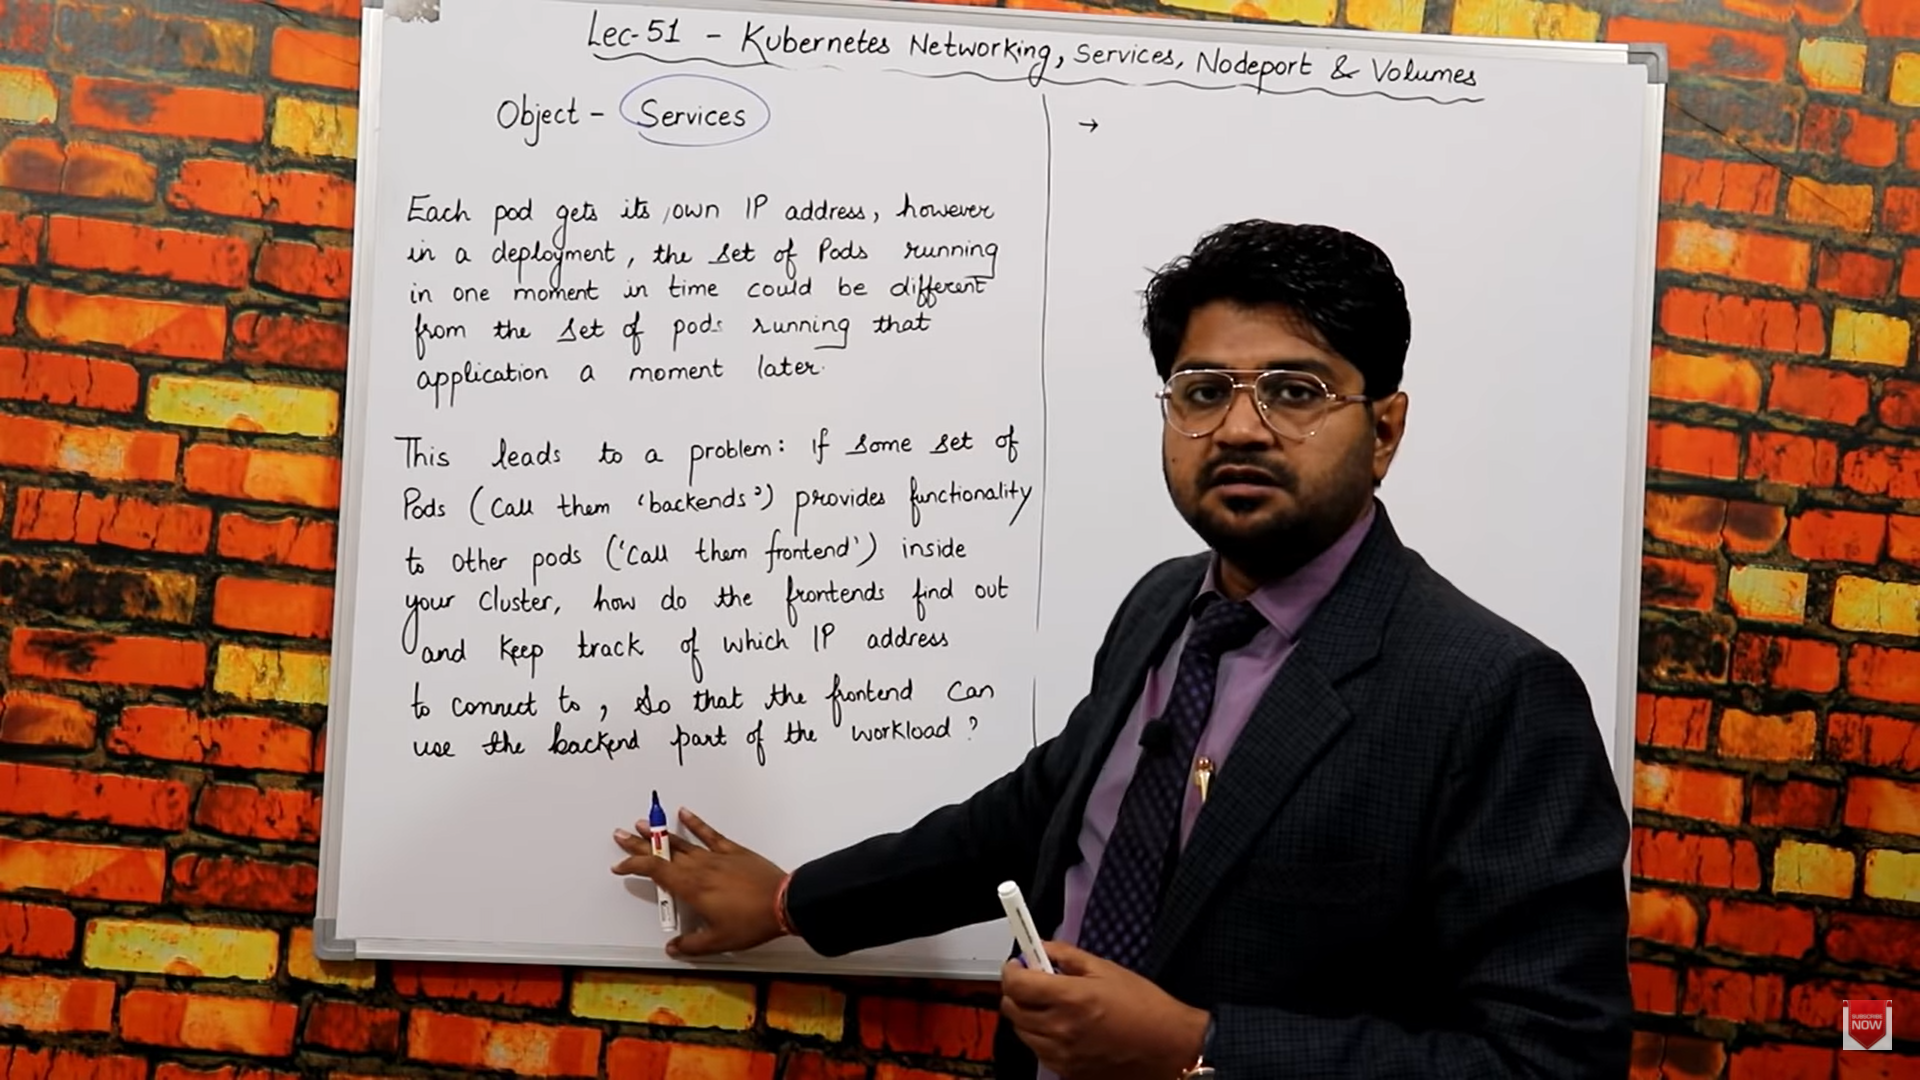 Lec-51 - Kubernetes Networking, Services, Nodeport & Volumes
Object - Services
→
Each pod gets its own IP address, however
in a deployment, the set of Pods running
in one moment in time could be different
from the set of pods running that
application a moment later.
This leads to a problem: if some set of
Pods (Call them 'backends') provides functionality
to other pods ('Call them frontend') inside
your Cluster, how do the frontends find out
and keep track of which IP address
to connect to, so that the frontend can
use the backend part of the workload?
SUBSCRIBE
NOW